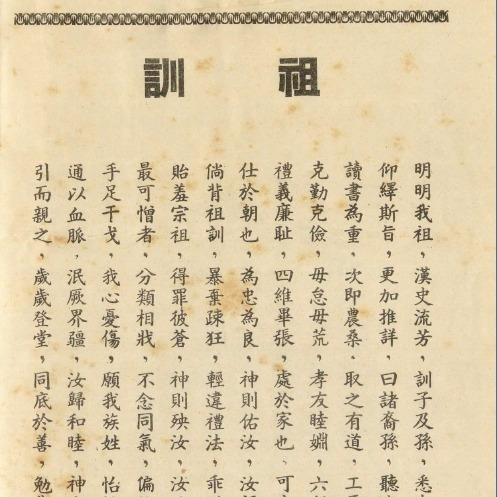 祖訓
明明我祖，漢史流芳，訓子及孫，悉
仰繹斯旨，更加推詳，曰諸裔孫，聽
讀書為重，次即農桑，取之有道，工
克勤克儉，毋怠毋荒，孝友睦婣，六
禮義廉耻，四維畢張，處於家也，可
仕於朝也，為忠為良，神則佑汝，汝
倘背祖訓，暴棄疎狂，輕違禮法，乖
貽羞宗祖，得罪彼蒼，神則殃汝，汝
最可憎者，分類相戕，不念同氣，偏
手足干戈，我心憂傷，願我族姓，怡
通以血脈，泯厥界疆，汝歸和睦，神
引而親之，歲歲登堂，同底於善，勉